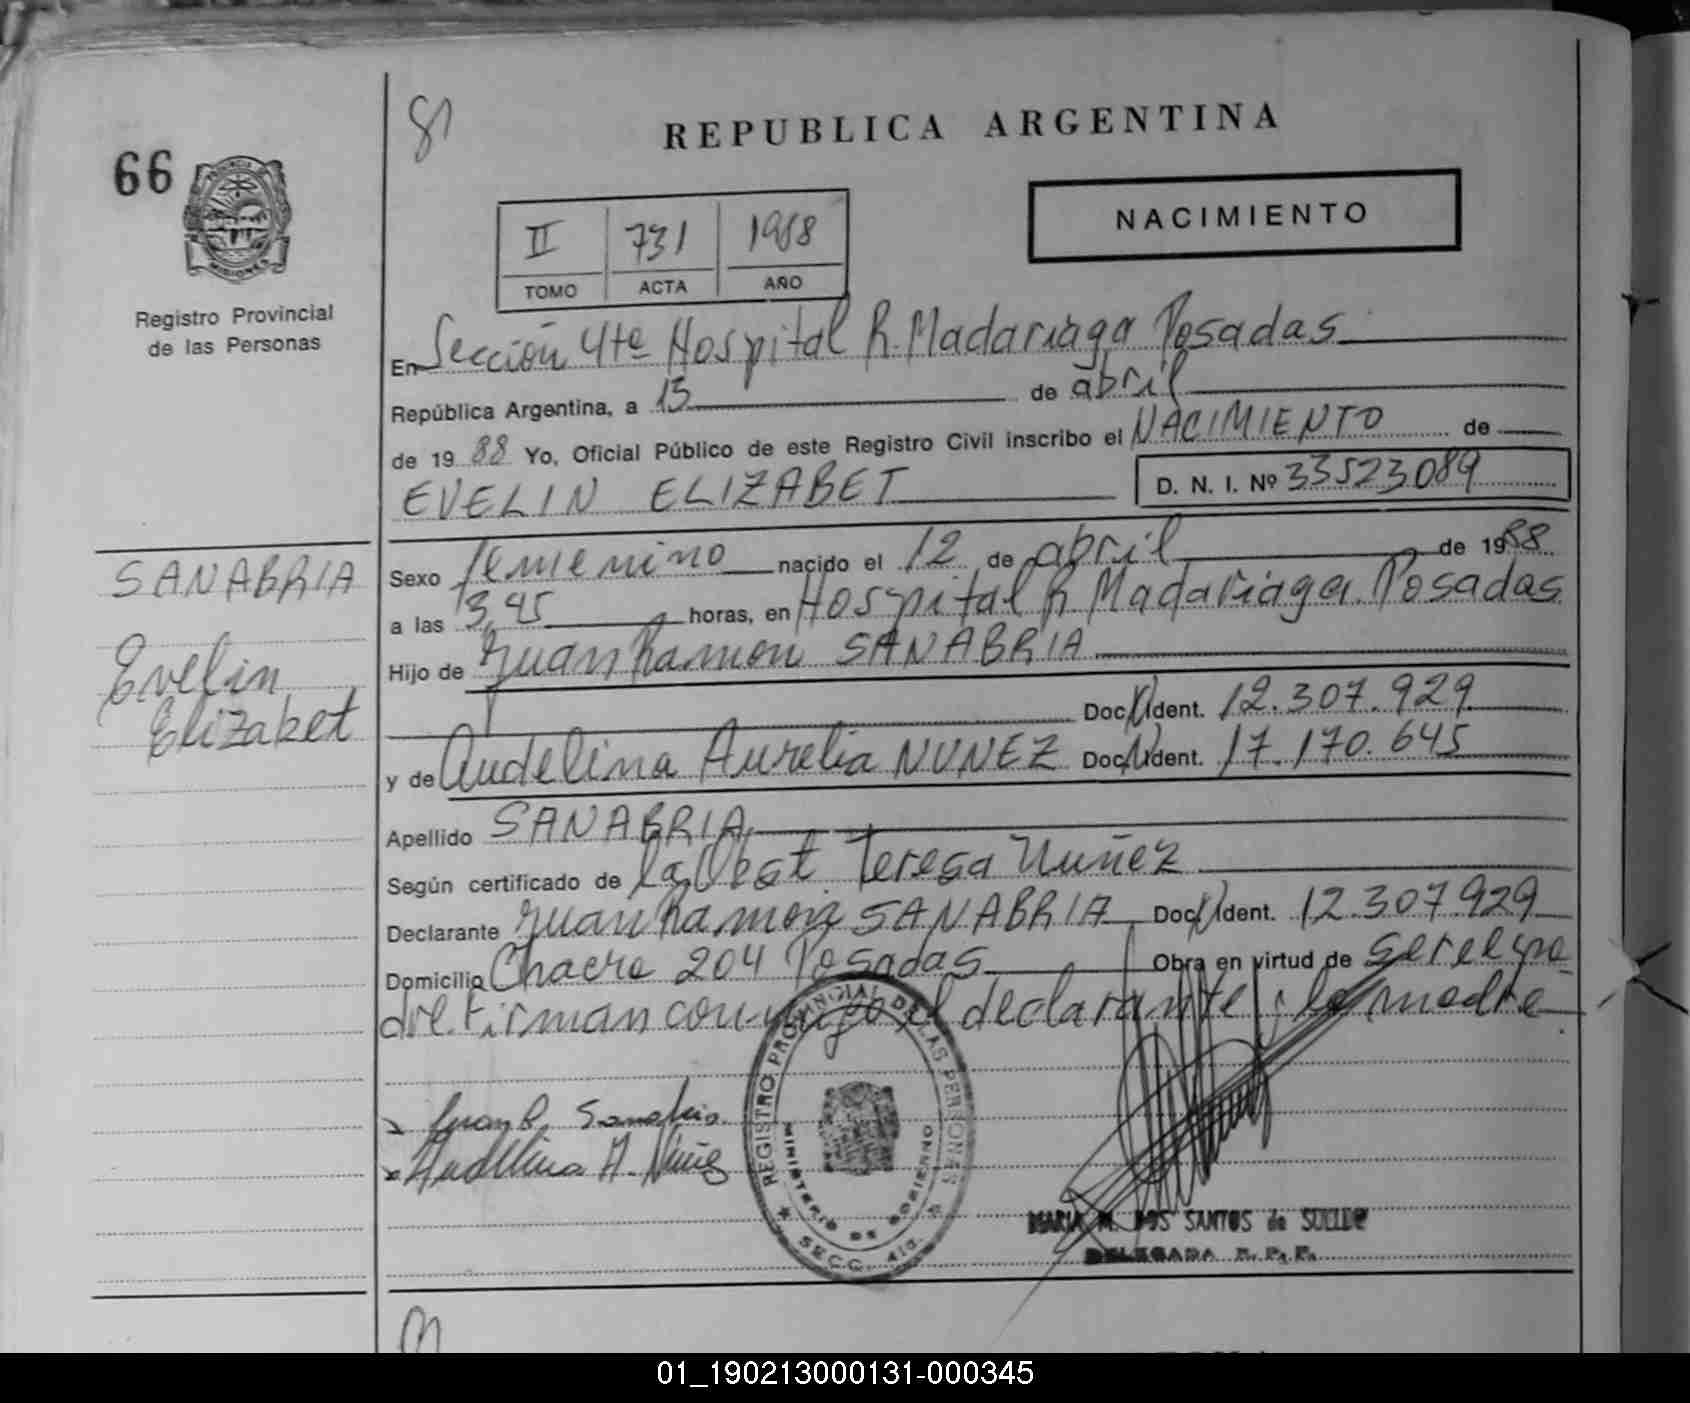 81
REPUBLICA ARGENTINA
66
PROVINCIA
MISIONES
Registro Provincial
de las Personas
II 731 1988
TOMO ACTA AÑO
NACIMIENTO
En Sección 4ta Hospital R. Madariaga Posadas
República Argentina, a 13 de abril
de 1988 Yo, Oficial Público de este Registro Civil inscribo el NACIMIENTO de
EVELIN ELIZABET D. N. I. Nº 33523089
SANABRIA
Evelin
Elizabet
Sexo femenino nacido el 12 de abril de 1988
a las 3,45 horas, en Hospital R. Madariaga Posadas
Hijo de Juan Ramon SANABRIA
Doc. Ident. 12.307.929
y de Audelina Aurelia NUNEZ Doc. Ident. 17.170.645
Apellido SANABRIA
Según certificado de la Obst. Teresa Nuñez
Declarante Juan Ramon SANABRIA Doc. Ident. 12.307929
Domicilio Chacra 204 Posadas Obra en virtud de ser el pa
dre. Firman conmigo el declarante y la madre
Juan R. Sanabria
Audelina A. Nuñez
REGISTRO PROVINCIAL DE LAS PERSONAS
MINISTERIO DE GOBIERNO
SECC. 4ta.
MARIA M. DOS SANTOS de SUELDO
DELEGADA R. P. P.
01_190213000131-000345